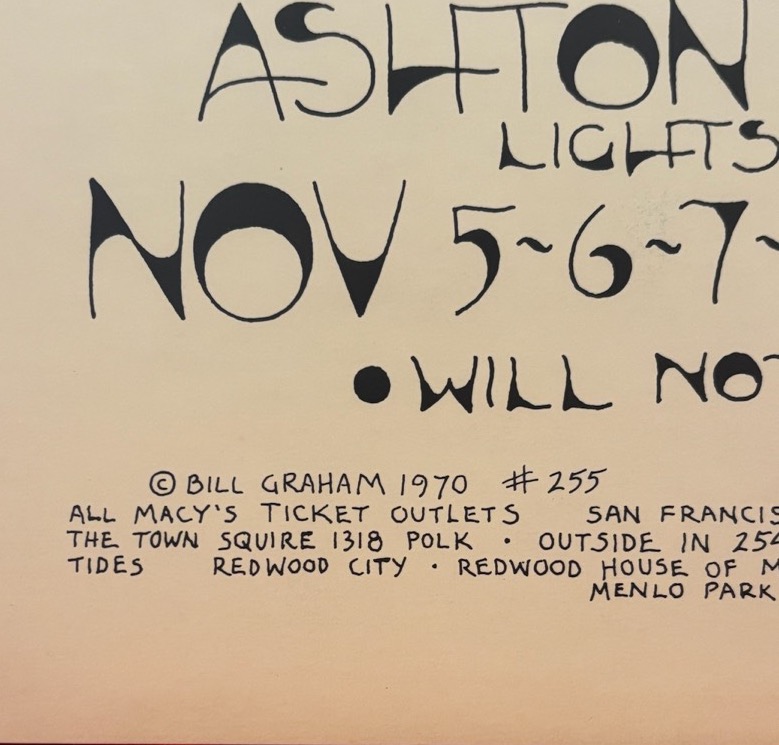 ASHTON
LIGHTS
NOV 5~6~7~
• WILL NOT
© BILL GRAHAM 1970 # 255
ALL MACY'S TICKET OUTLETS SAN FRANCIS
THE TOWN SQUIRE 1318 POLK • OUTSIDE IN 254
TIDES REDWOOD CITY • REDWOOD HOUSE OF M
MENLO PARK